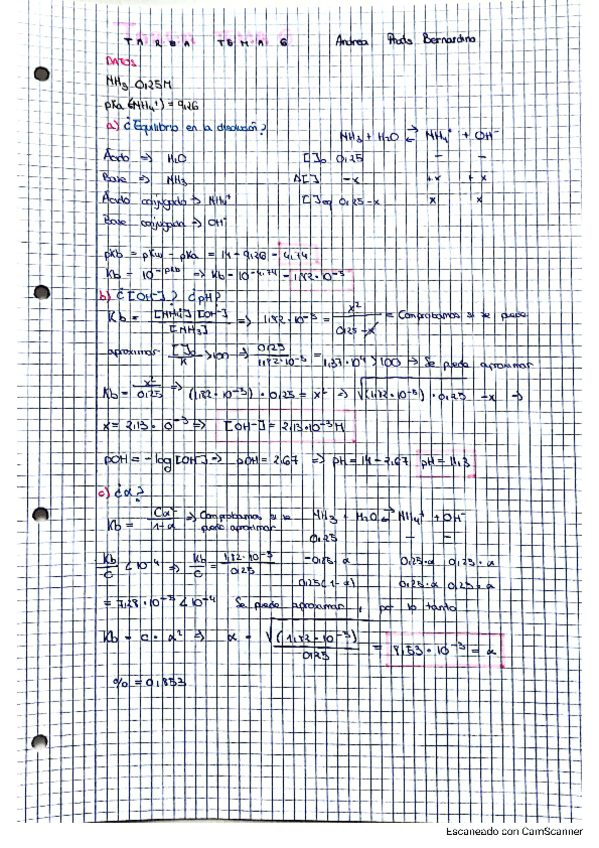 TAREA TEMA 6 Andrea Prats Bernardino
DATOS
NH3 0,25M
pKa (NH4+) = 9,26
a) ¿Equilibrio en la disolución?
NH3 + H2O ⇄ NH4+ + OH-
Ácido => H2O []o 0,25 - -
Base => NH3 Δ[] -x +x +x
Ácido conjugado -> NH4+ []eq 0,25-x x x
Base conjugada -> OH-
pKb = pKw - pKa = 14 - 9,26 = 4,74
Kb = 10^-pKb => Kb = 10^-4,74 = 1,82·10^-5
b) ¿[OH-]? ¿pH?
Kb = [NH4+][OH-]/[NH3] => 1,82·10^-5 = x²/0,25-x = Comprobamos si se puede
aproximar []o/K > 100 => 0,25/1,82·10^-5 = 1,37·10^4 > 100 -> Se puede aproximar
Kb = x²/0,25 => (1,82·10^-5)·0,25 = x² => √(1,82·10^-5)·0,25 = x ->
x = 2,13·0^-3 => [OH-] = 2,13·10^-3 M
pOH = -log[OH-] -> pOH = 2,67 => pH = 14 - 2,67 pH = 11,3
c) ¿α?
Kb = Cα²/1-α => Comprobamos si se puede aproximar
NH3 + H2O ⇄ NH4+ + OH-
0,25 - -
-0,25·α 0,25·α 0,25·α
0,25(1-α) 0,25·α 0,25·α
Kb/C < 10^-4 => Kb/C = 1,82·10^-5/0,25
= 7,28·10^-5 < 10^-4 Se puede aproximar, por lo tanto
Kb = C·α² => α = √(1,82·10^-5)/0,25 = 8,53·10^-3 = α
% = 0,853
Escaneado con CamScanner